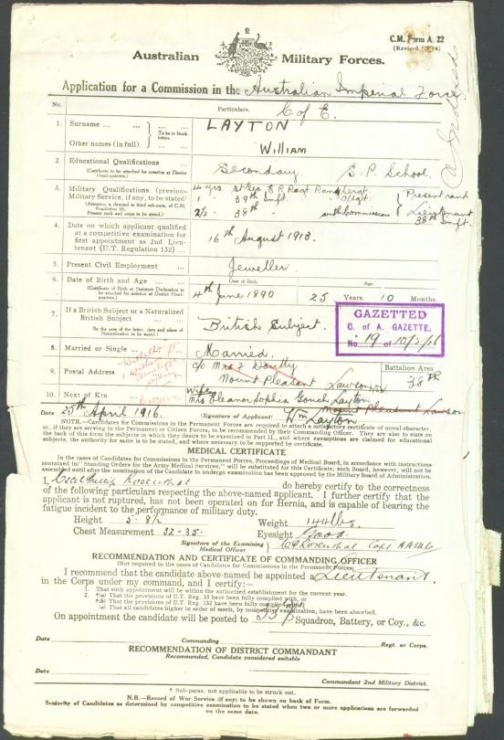 C.M. Form A. 22
Australian Military Forces.
Application for a Commission in the Australian Imperial Force
No. Particulars.
C of E.
1. Surname LAYTON
Other names (in full) William
To be in block letters.
2. Educational Qualifications Secondary S. P. School.
(Certificate to be attached for salection at District Head-quarters.)
3. Military Qualifications (previous Military Service, if any, to be stated)
4 yrs
1 39th Inft. Sergt. Present rank
2/12 - 38th Lieutenant
38th Inft.
4. Date on which applicant qualified at a competitive examination for first appointment as 2nd Lieutenant (U.T. Regulation 132) 16th August 1913.
5. Present Civil Employment Jeweller.
6. Date of Birth and Age Age.
4th June 1890 25 Years. 10 Months.
7. If a British Subject or a Naturalized British Subject British Subject.
GAZETTED
C. of A. GAZETTE,
No. 19 of
8. Married or Single Married.
9. Postal Address c/o Mrs
Mount Pleasant Lawson
Battalion Area
38
10. Next of Kin Wife
Mrs Eleanor Sophia Layton
Mount Pleasant Lawson
Date 25th April 1916. (Signature of Applicant) Wm Layton
NOTE.—Candidates for Commissions in the Permanent Forces are required to attach a satisfactory certificate of moral character, or, if they are serving in the Permanent or Citizen Forces, to be recommended by their Commanding Officer. They are also to state on the back of this form the subjects in which they desire to be examined in Part II., and where exemptions are claimed for educational subjects, the authority for same is to be stated, and where necessary to be supported by certificate.
MEDICAL CERTIFICATE
In the cases of Candidates for Commissions in the Permanent Forces, Proceedings of Medical Board, in accordance with instructions contained in "Standing Orders for the Army Medical services," will be substituted for this Certificate; such Board, however, will not be assembled until after the nomination of the Candidate to undergo examination has been approved by the Military Board of Administration.
I, Rosenthal do hereby certify to the correctness
of the following particulars respecting the above-named applicant. I further certify that the
applicant is not ruptured, has not been operated on for Hernia, and is capable of bearing
fatigue incident to the performance of military duty.
Height 5-8½ Weight 144 lbs.
Chest Measurement 32-35. Eyesight Good
Signature of the Examining Medical Officer Rosenthal Capt AAMC
RECOMMENDATION AND CERTIFICATE OF COMMANDING OFFICER
(Not required in the cases of Candidates for Commissions in the Permanent Forces.)
I recommend that the candidate above-named be appointed a Lieutenant
in the Corps under my command, and I certify:—
1. That such appointment will be within the authorized establishment for the current year.
2. *(a) That the provisions of U.T. Reg. 33 have been fully complied with, or
*(b) That the provisions of U.T. Reg. 132 have been fully complied with
(c) That all candidates higher in order of merit, by competitive examination, have been absorbed.
On appointment the candidate will be posted to Squadron, Battery, or Coy., &c.
Date Commanding Regt. or Corps.
RECOMMENDATION OF DISTRICT COMMANDANT
Recommended, Candidate considered suitable
Date
Commandant 2nd Military District.
* Sub-para. not applicable to be struck out.
N.B.—Record of War Service (if any) to be shown on back of Form.
Seniority of Candidates as determined by competitive examination to be stated when two or more applications are forwarded
on the same date.